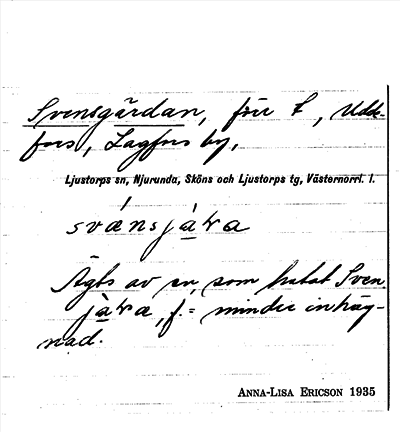 Svensgärdan, för f, Udde-
fors, Lagfors by,
Ljustorps sn, Njurunda, Sköns och Ljustorps tg, Västernorrl. l.
svánsjàra
Ägts av en, som hetat Sven
jàra, f. = mindre inhäg-
nad.
ANNA-LISA ERICSON 1935